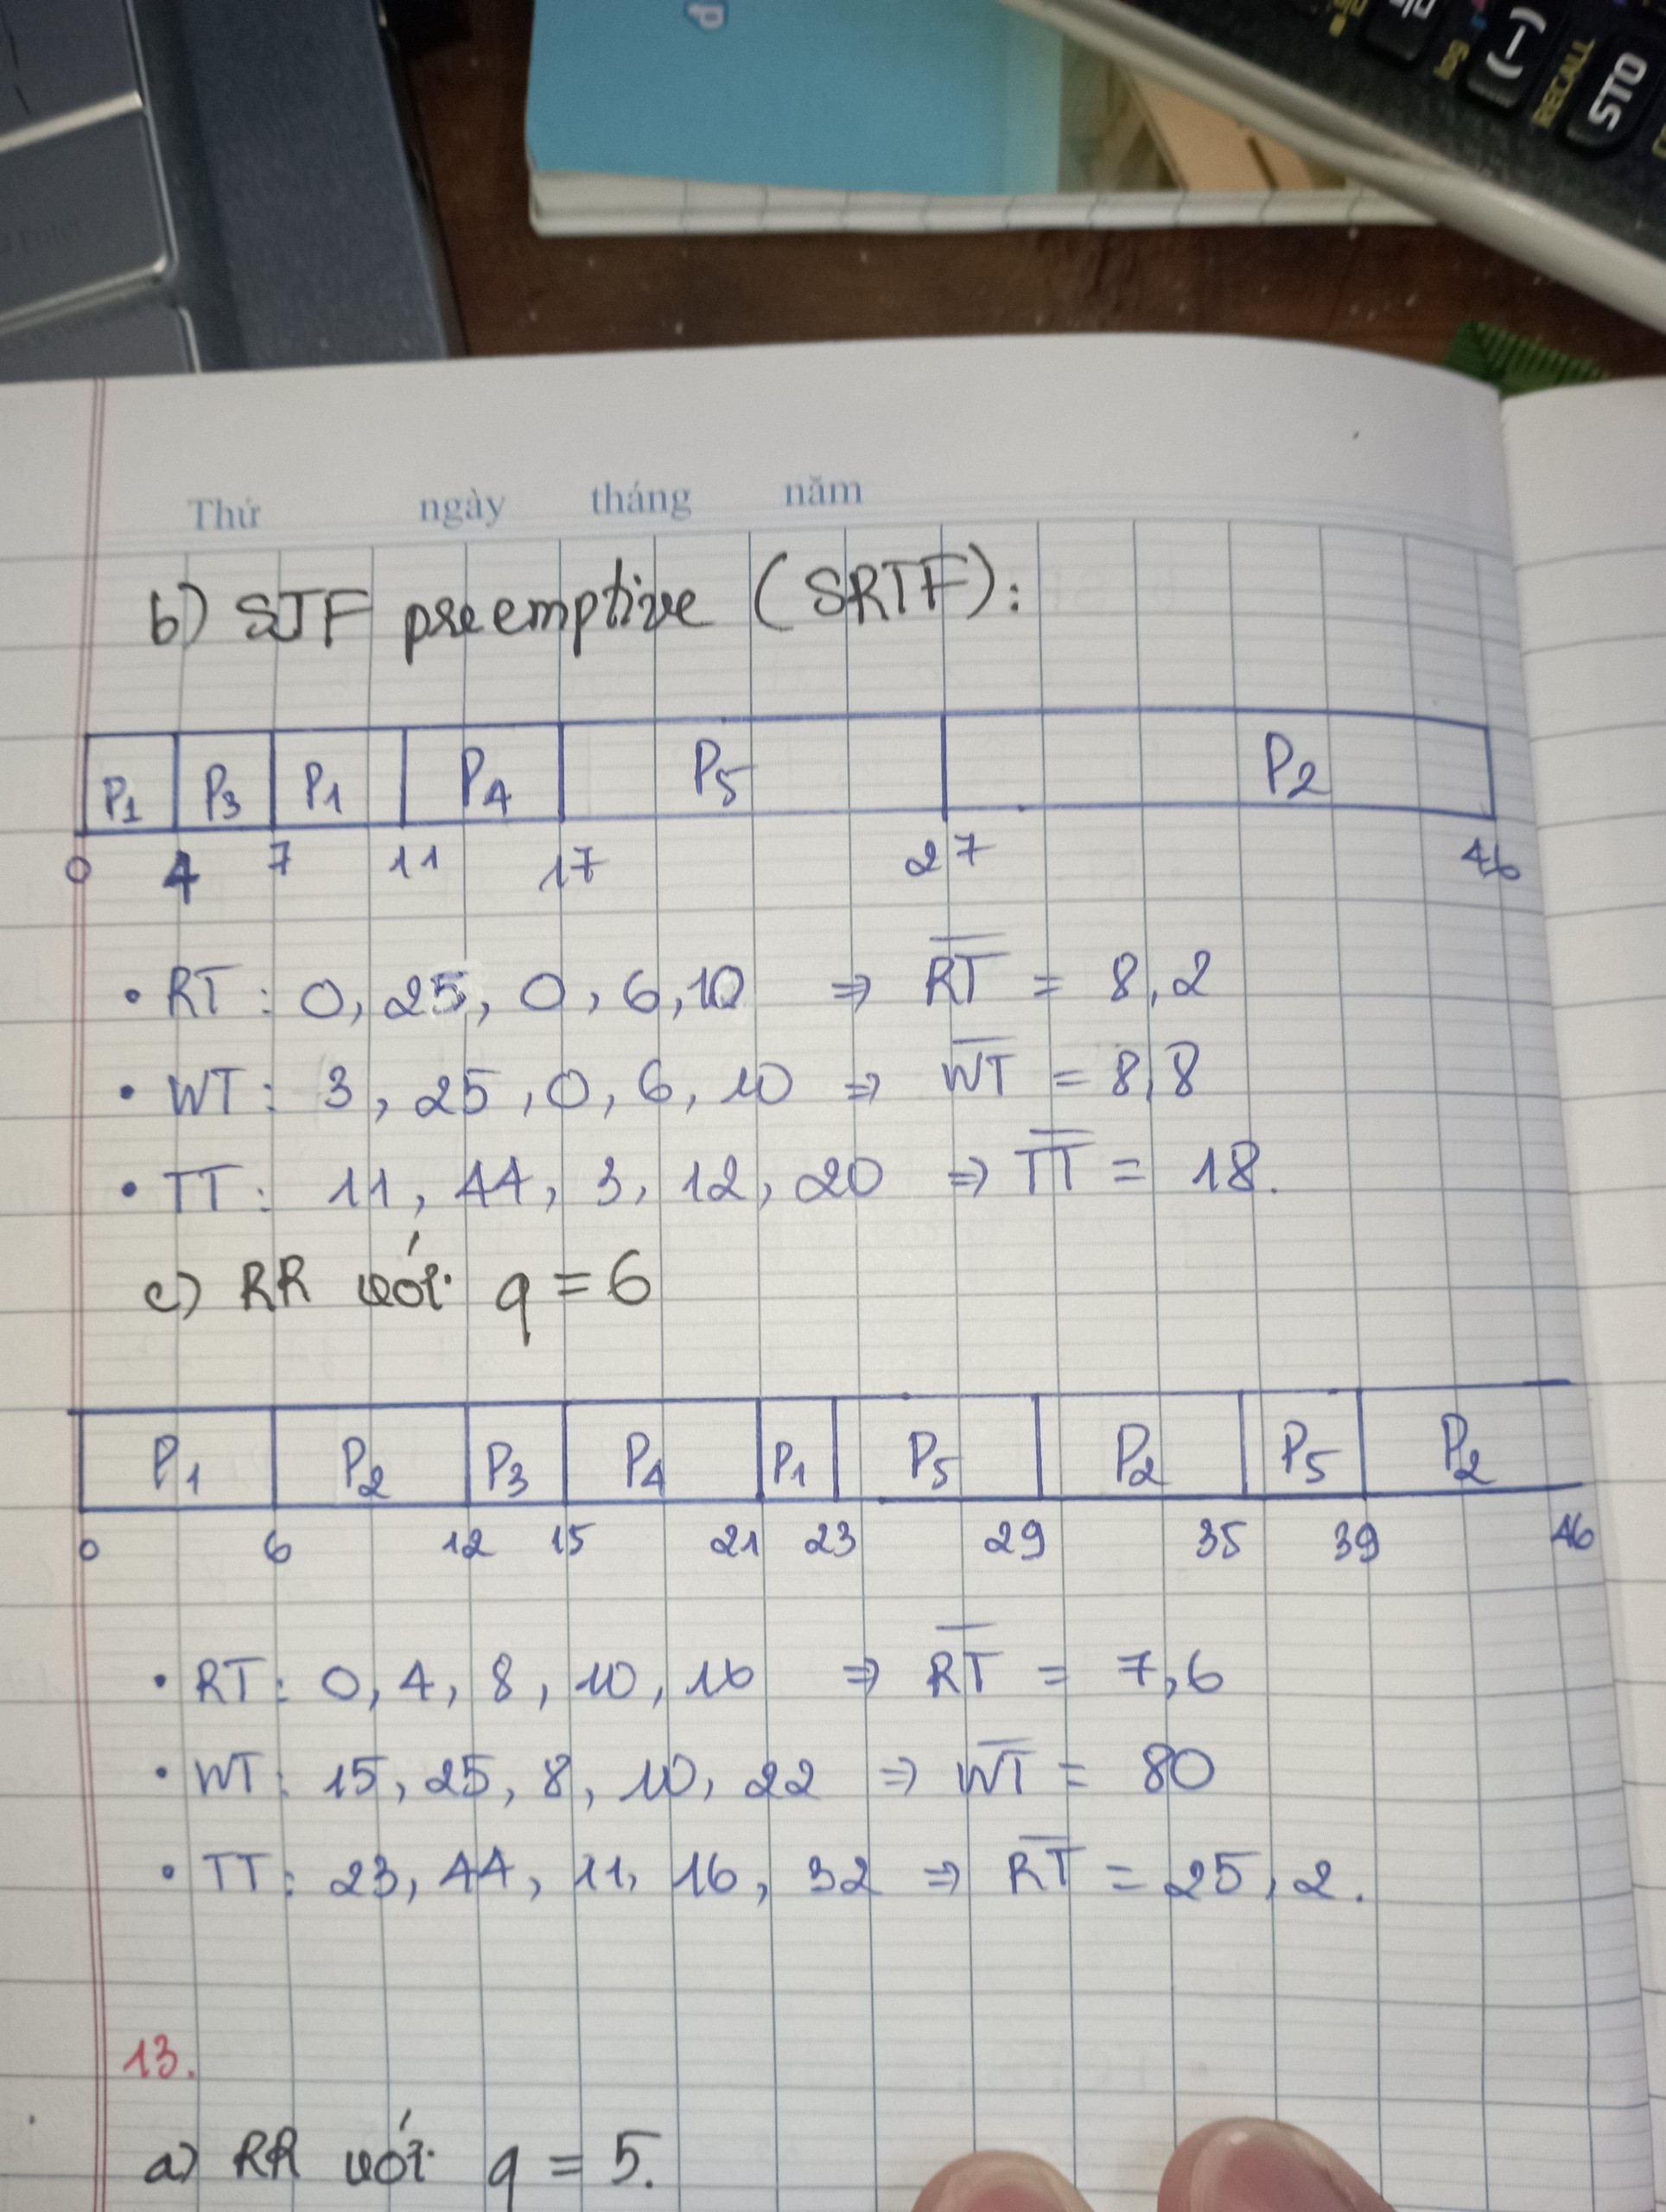 p
(−)
STO
RECALL
log
Enter
Thứ ngày tháng năm
b) SJF preemptive (SRTF):
P1 P3 P1 P4 P5 P2
0 4 7 11 17 27 46
• RT : 0, 25, 0, 6, 10 ⇒ RT = 8,2
• WT : 3, 25, 0, 6, 10 ⇒ WT = 8,8
• TT : 11, 44, 3, 12, 20 ⇒ TT = 18.
c) RR với q = 6
P1 P2 P3 P4 P1 P5 P2 P5 P2
0 6 12 15 21 23 29 35 39 46
• RT : 0, 4, 8, 10, 16 ⇒ RT = 7,6
• WT : 15, 25, 8, 10, 22 ⇒ WT = 80
• TT : 23, 44, 11, 16, 32 ⇒ RT = 25,2.
13.
a) RR với q = 5.